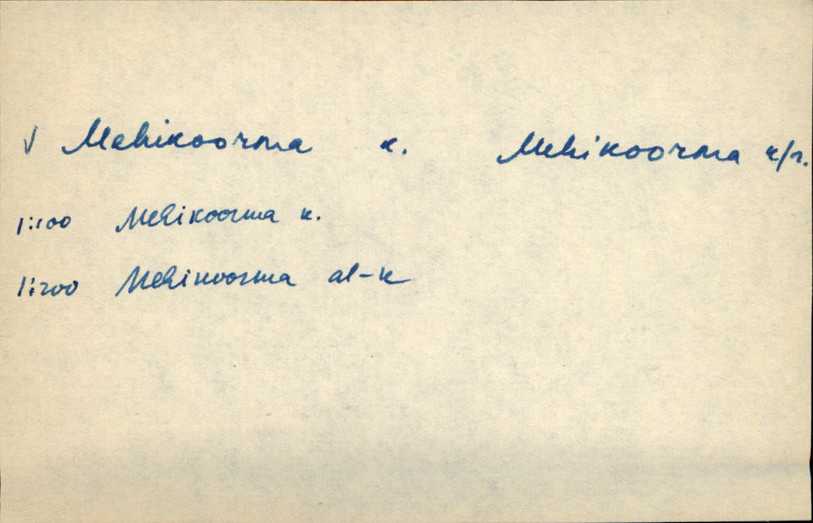 √ Mehikoorma k. Mehikoorma k/n.
1:100 Mehikoorma k.
1:200 Mehikoorma al-k